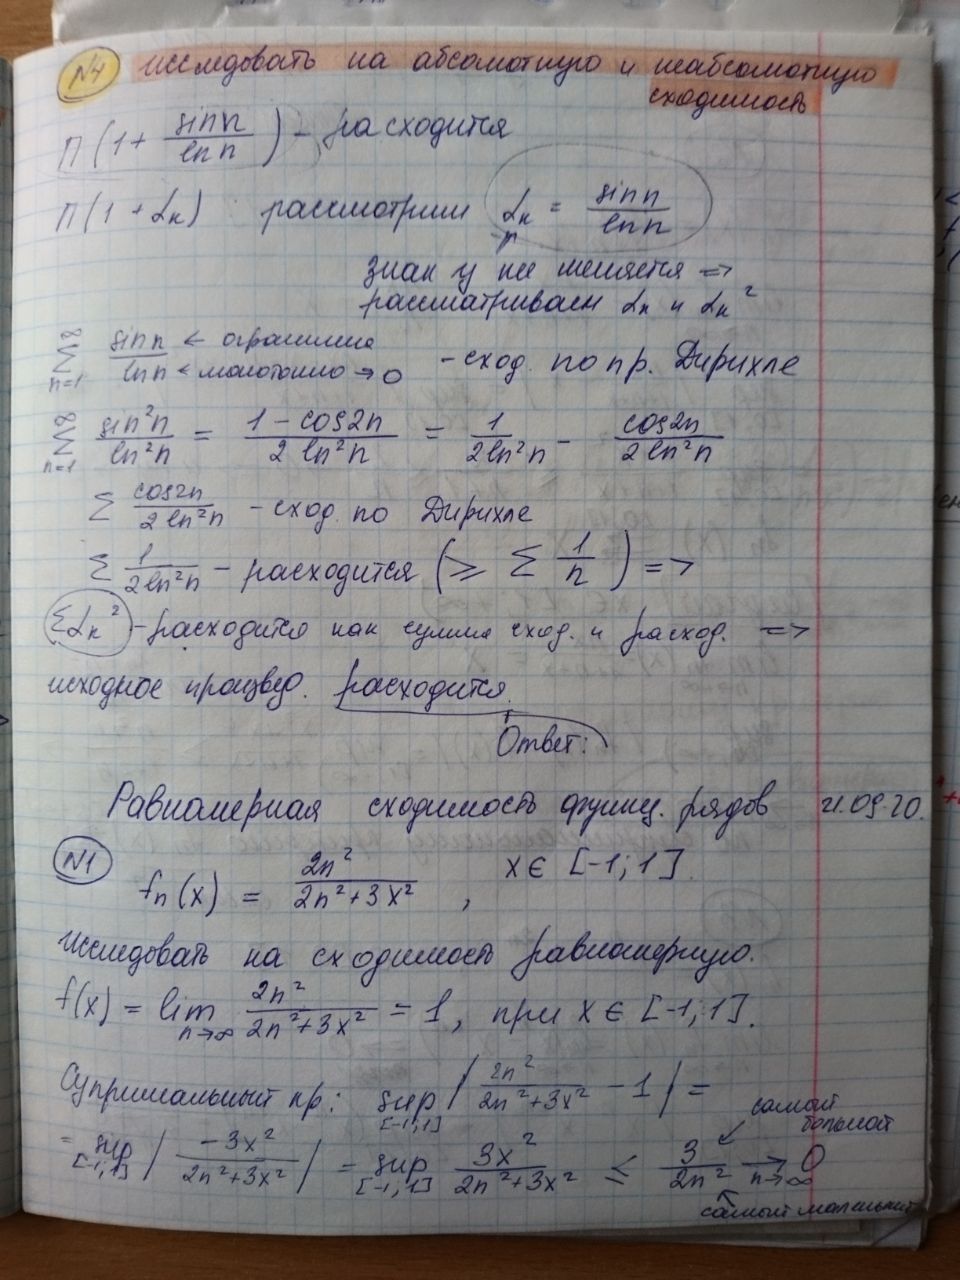 N4 исследовать на абсолютную и неабсолютную
сходимость
П(1 + sin n / ln n) - расходится
П(1 + αn) рассмотрим αn = sin n / ln n
знак у не меняется =>
рассматриваем αn и αn²
∞ Σ n=1 sin n / ln n ← огранич ← монотонно → 0 - сход. по пр. Дирихле
∞ Σ n=1 sin²n / ln²n = (1 - cos2n) / (2 ln²n) = 1 / (2 ln²n) - cos2n / (2 ln²n)
Σ cos2n / (2 ln²n) - сход. по Дирихле
Σ 1 / (2 ln²n) - расходится (≥ Σ 1/n) =>
Σαn² - расходится как сумма сход. и расход. =>
исходное произвед. расходится.
Ответ:
Равномерная сходимость функц. рядов 21.09.20.
N1 fn(x) = 2n² / (2n² + 3x²), x ∈ [-1; 1].
Исследовать на сходимость равномерную.
f(x) = lim n→∞ 2n² / (2n² + 3x²) = 1, при x ∈ [-1; 1].
Супримальный пр: sup [-1;1] | 2n² / (2n² + 3x²) - 1 | =
самый большой
= sup [-1;1] | -3x² / (2n² + 3x²) | = sup [-1;1] 3x² / (2n² + 3x²) ≤ 3 / 2n² → n→∞ 0
самый маленький